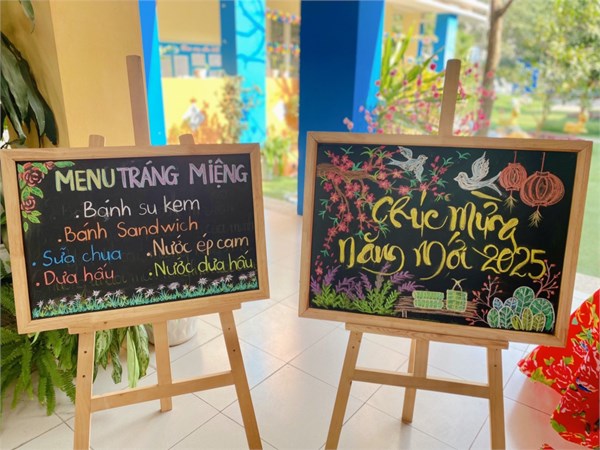 MENU TRÁNG MIỆNG
. Bánh su kem
. Bánh Sandwich
. Sữa chua
. Nước ép cam
. Dưa hấu
. Nước dưa hấu
Chúc mừng
năm mới 2025